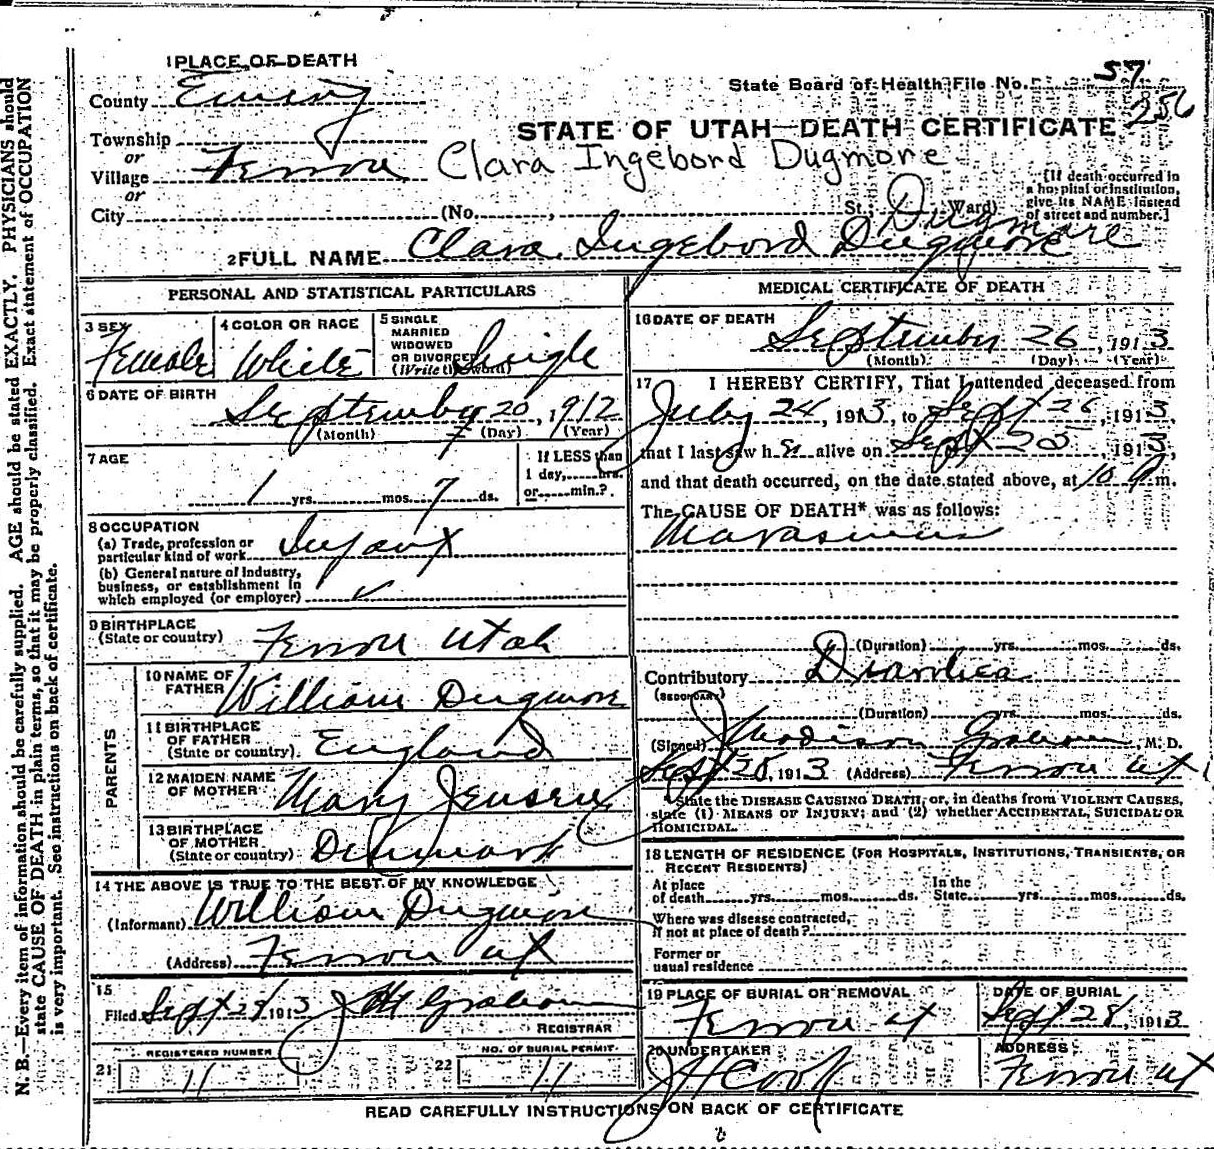 1 PLACE OF DEATH
County Emery
State Board of Health File No. 57
256
Township
or
STATE OF UTAH—DEATH CERTIFICATE
Village Ferron Clara Ingebord Dugmore
or
City (No. , St., Ward)
[If death occurred in a hospital or institution, give its NAME instead of street and number.]
Dugmore
2 FULL NAME Clara Ingebord Dugmore
PERSONAL AND STATISTICAL PARTICULARS
3 SEX Female
4 COLOR OR RACE White
5 SINGLE MARRIED WIDOWED OR DIVORCED (Write the word) Single
6 DATE OF BIRTH
September 20, 1912
(Month) (Day) (Year)
7 AGE
1 yrs. mos. 7 ds.
If LESS than 1 day, hrs. or min.?
8 OCCUPATION
(a) Trade, profession or particular kind of work Infant
(b) General nature of industry, business, or establishment in which employed (or employer) ✓
9 BIRTHPLACE
(State or country) Ferron Utah
PARENTS
10 NAME OF FATHER William Dugmore
11 BIRTHPLACE OF FATHER (State or country) England
12 MAIDEN NAME OF MOTHER Mary Jensen
13 BIRTHPLACE OF MOTHER (State or country) Denmark
14 THE ABOVE IS TRUE TO THE BEST OF MY KNOWLEDGE
(Informant) William Dugmore
(Address) Ferron ut
15
Filed Sept 28 1913 J M Graham
REGISTRAR
21 REGISTERED NUMBER 11
22 NO. OF BURIAL PERMIT. 11
MEDICAL CERTIFICATE OF DEATH
16 DATE OF DEATH
September 26, 1913
(Month) (Day) (Year)
17 I HEREBY CERTIFY, That I attended deceased from
July 24, 1913, to Sept 26, 1913
that I last saw her alive on Sept 25, 1913
and that death occurred, on the date stated above, at 10 P.m.
The CAUSE OF DEATH* was as follows:
Marasmus
(Duration) yrs. mos. ds.
Contributory Diarrhea
(SECONDARY)
(Duration) yrs. mos. ds.
(Signed) J Madison Graham, M. D.
Sept 28, 1913 (Address) Ferron ut
*State the DISEASE CAUSING DEATH, or, in deaths from VIOLENT CAUSES, state (1) MEANS OF INJURY; and (2) whether ACCIDENTAL, SUICIDAL OR HOMICIDAL.
18 LENGTH OF RESIDENCE (FOR HOSPITALS, INSTITUTIONS, TRANSIENTS, OR RECENT RESIDENTS)
At place of death yrs. mos. ds. In the State yrs. mos. ds.
Where was disease contracted, if not at place of death?
Former or usual residence
19 PLACE OF BURIAL OR REMOVAL Ferron ut
DATE OF BURIAL Sept 28, 1913
20 UNDERTAKER J H Cook
ADDRESS Ferron ut
READ CAREFULLY INSTRUCTIONS ON BACK OF CERTIFICATE
N. B.—Every item of information should be carefully supplied. AGE should be stated EXACTLY. PHYSICIANS should
state CAUSE OF DEATH in plain terms, so that it may be properly classified. Exact statement of OCCUPATION
is very important. See instructions on back of certificate.